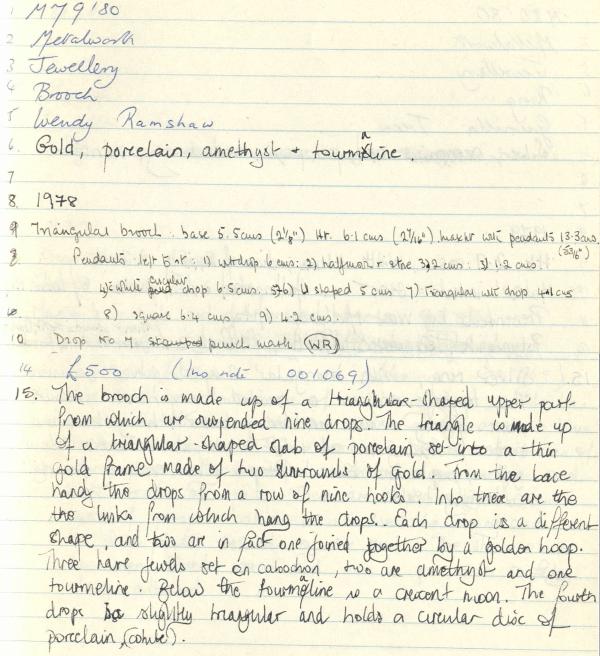 1 M79'80
2 Metalwork
3 Jewellery
4 Brooch
5 Wendy Ramshaw
6. Gold, porcelain, amethyst + tourmaline.
7
8. 1978
9 Triangular brooch: base 5.5cms (2⅛") Ht. 6.1 cms (2 7/16") max ht with pendants 13.3cms
(5 3/16")
Pendants left to rt: 1) wtdrop 6 cms: 2) halfmoon + stne 3.2 cms: 3) 1.2 cms
4) White circular drop 6.5cms. 5+6) U shaped 5 cms 7) Triangular wt drop 4.1 cms
8) square 6.4 cms 9) 4.2 cms.
10 Drop No 7 stamped punch mark (WR)
14 £500 (Ins note 001069)
15. The brooch is made up of a triangular-shaped upper part
from which are suspended nine drops. The triangle is made up
of a triangular-shaped slab of porcelain set into a thin
gold frame made of two surrounds of gold. From the base
hang the drops from a row of nine hooks. Into these are the
the links from which hang the drops. Each drop is a different
shape, and two are in fact one joined together by a golden hoop.
Three have jewels set en cabochon, two are amethyst and one
tourmeline. Below the tourmaline is a crescent moon. The fourth
drops is slightly triangular and holds a circular disc of
porcelain, (white).